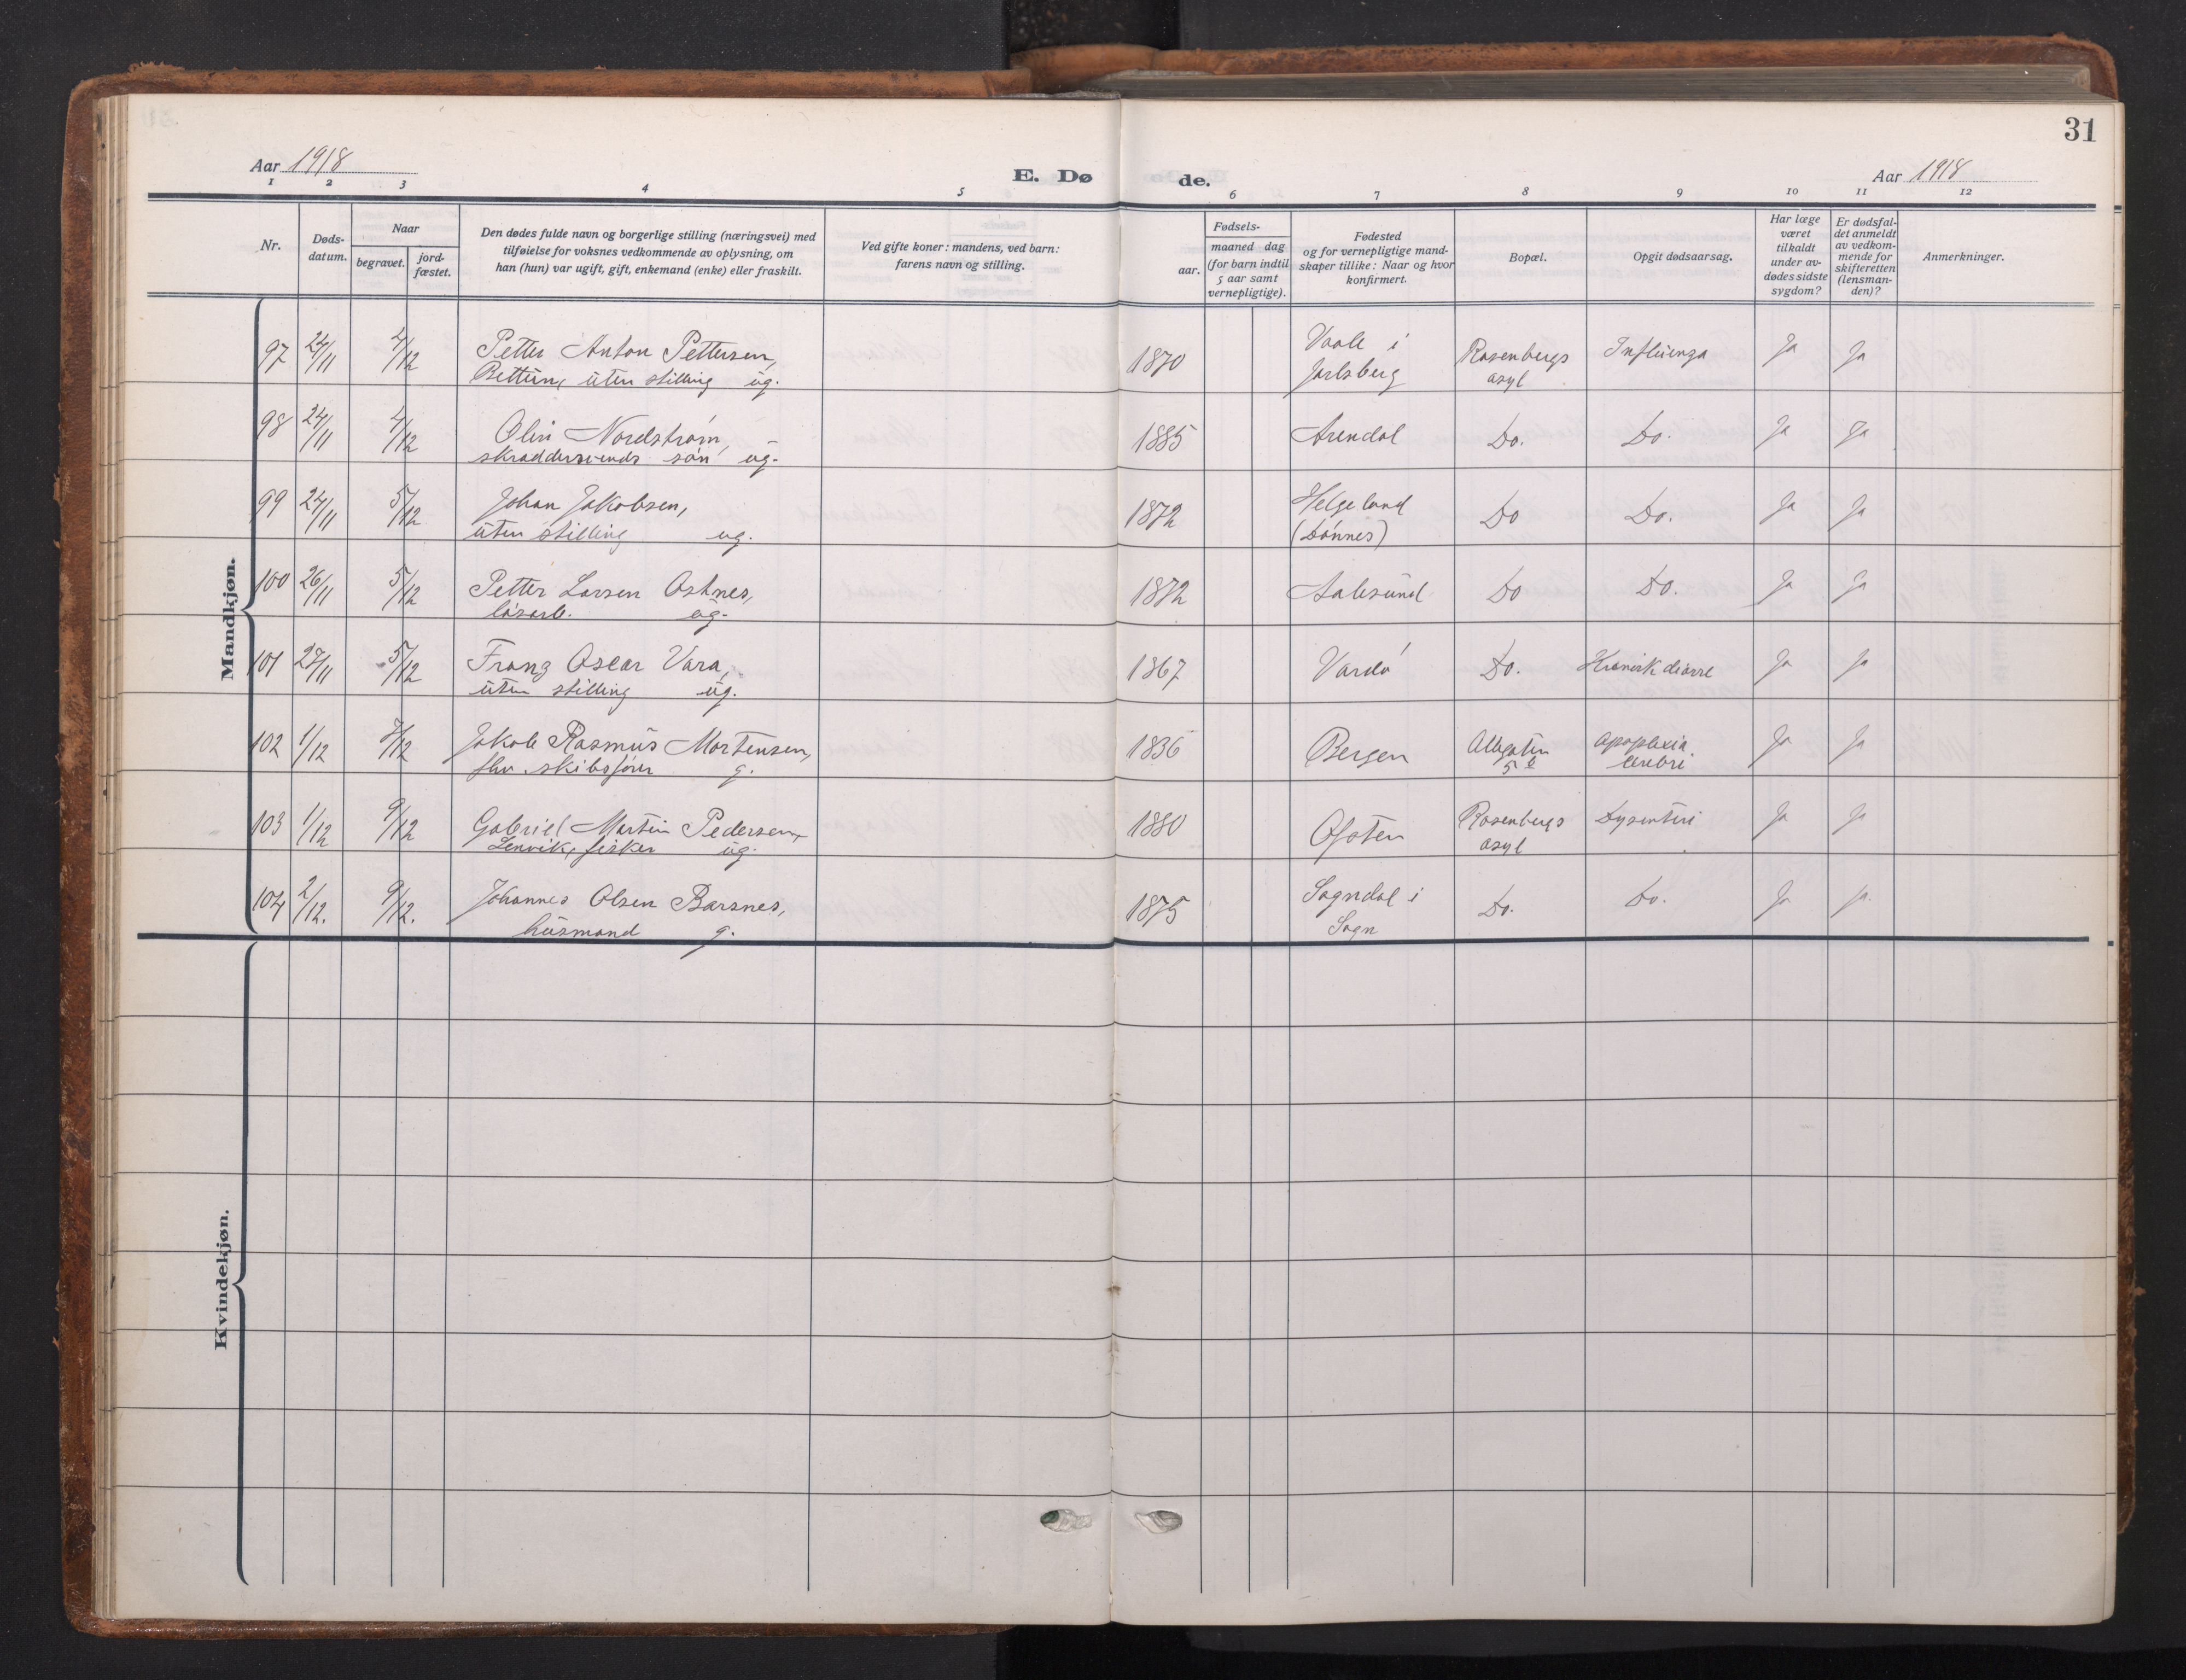 31
Aar 1918
E. Dø de.
Aar 1918
1 2 3 4 5 6 7 8 9 10 11 12
Nr.
Døds-
datum.
Naar
begravet.
jord-
fæstet.
Den dødes fulde navn og borgerlige stilling (næringsvei) med
tilføielse for voksnes vedkommende av oplysning, om
han (hun) var ugift, gift, enkemand (enke) eller fraskilt.
Ved gifte koner: mandens, ved barn:
farens navn og stilling.
Fødsels-
aar.
maaned dag
(for barn indtil
5 aar samt
vernepligtige).
Fødested
og for vernepligtige mand-
skaper tillike: Naar og hvor
konfirmert.
Bopæl.
Opgit dødsaarsag.
Har læge
været
tilkaldt
under av-
dødes sidste
sygdom?
Er dødsfal-
det anmeldt
av vedkom-
mende for
skifteretten
(lensman-
den)?
Anmerkninger.
Mandkjøn.
97 24/11 4/12 Petter Anton Pettersen, 1870 Vaale i Rosenbergs Influenza Ja Ja
uten stilling ug. Jarlsberg asyl
98 24/11 4/12 Nordstrøm, 1885 Arendal Do. Do. Ja Ja
skraddersvends søn ug.
99 24/11 5/12 Johan Jakobsen, 1872 Helgeland Do Do. Ja Ja
uten stilling ug. (Dønnes)
100 26/11 5/12 Petter Larsen Ostnes, 1872 Aalesund Do Do. Ja Ja
løsarb. ug.
101 27/11 5/12 Franz Oscar Vara, 1867 Vardø Do. Kronisk diarre Ja Ja
uten stilling ug.
102 1/12 7/12 Jakob Rasmus Mortensen, 1836 Bergen Allegaten Apoplexia Ja Ja
fhv. skibsfører g. 5 b cerebri
103 1/12 9/12 Gabriel Martin Pedersen, 1880 Ofoten Rosenbergs Dysenteri Ja Ja
Lenvik, fisker ug. asyl
104 2/12. 9/12. Johannes Olsen Barsnes, 1875 Sogndal i Do. Do. Ja Ja
husmand g. Sogn
Kvindekjøn.